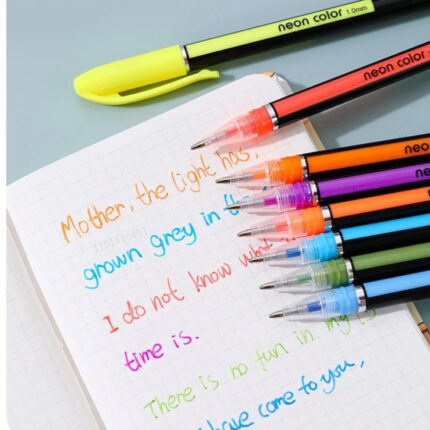 neon color 1.0mm
neon color
neon
neo
ne
Mother, the light has,
grown grey in the
I do not know what
time is.
There is no fun in my
have come to you,